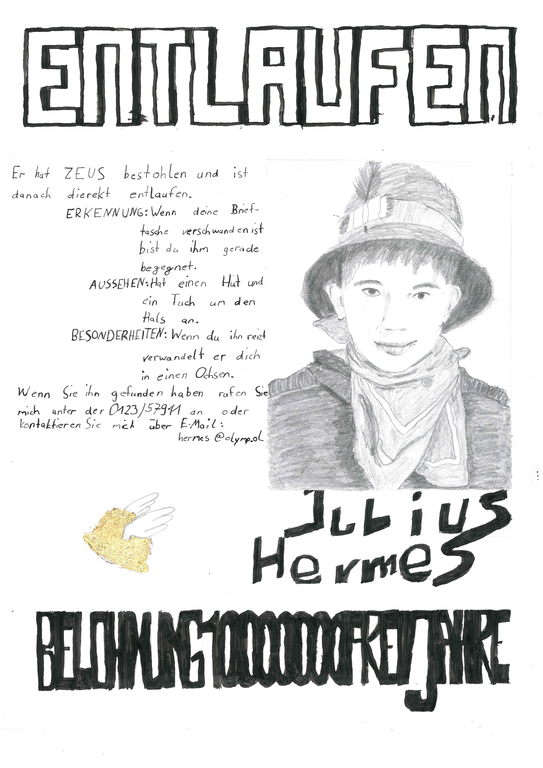 ENTLAUFEN
Er hat ZEUS bestohlen und ist
danach dierekt entlaufen.
ERKENNUNG: Wenn deine Brief-
tasche verschwanden ist
bist du ihm gerade
begegnet.
AUSSEHEN: Hat einen Hut und
ein Tuch um den
Hals an.
BESONDERHEITEN: Wenn du ihn reizt
verwandelt er dich
in einen Ochsen.
Wenn Sie ihn gefunden haben rufen Sie
mich unter der 0123/57911 an oder
kontaktieren Sie mich über E-Mail:
hermes@olymp.ol
Julius
Hermes
BELOHNUNG FREIJAHRE